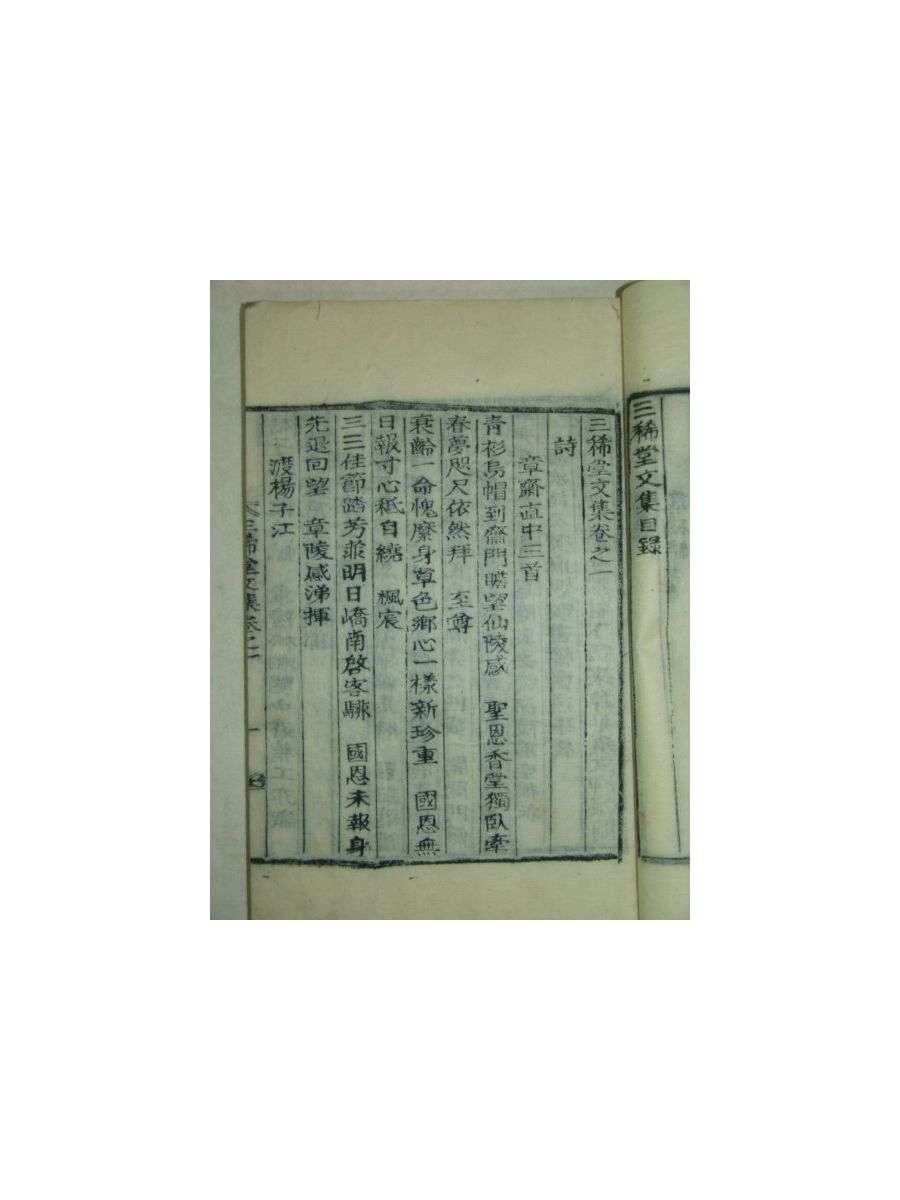 三稀堂文集目錄
三稀堂文集卷之一
詩
章齋直中三首
青衫烏帽到齋門瞻望仙陵感 聖恩香堂獨臥牽
春夢咫尺依然拜 至尊
衰齡一命愧縻身草色鄉心一樣新珍重 國恩無
日報寸心秪自繞 楓宸
三三佳節踏芳菲明日嶠南啓客騑 國恩未報身
先退回望 章陵感涕揮
渡楊子江
三稀堂文集卷之一
一